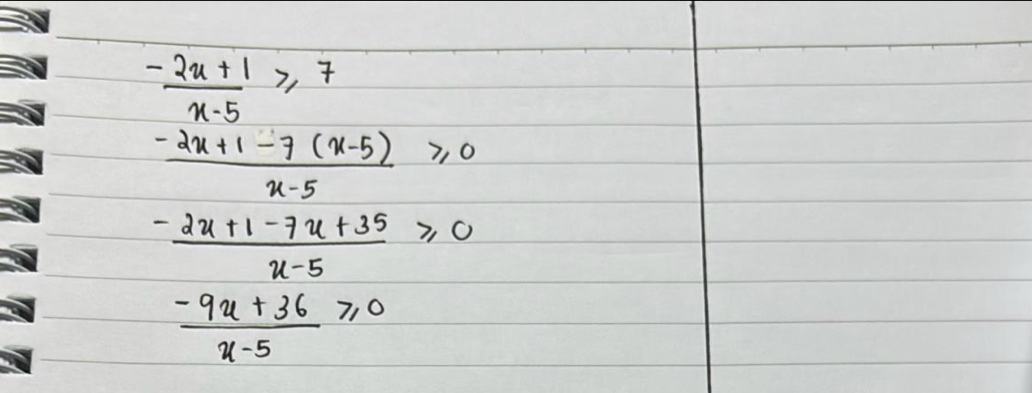 (-2x+1)/(x-5) ≥ 7
(-2x+1-7(x-5))/(x-5) ≥ 0
(-2x+1-7x+35)/(x-5) ≥ 0
(-9x+36)/(x-5) ≥ 0